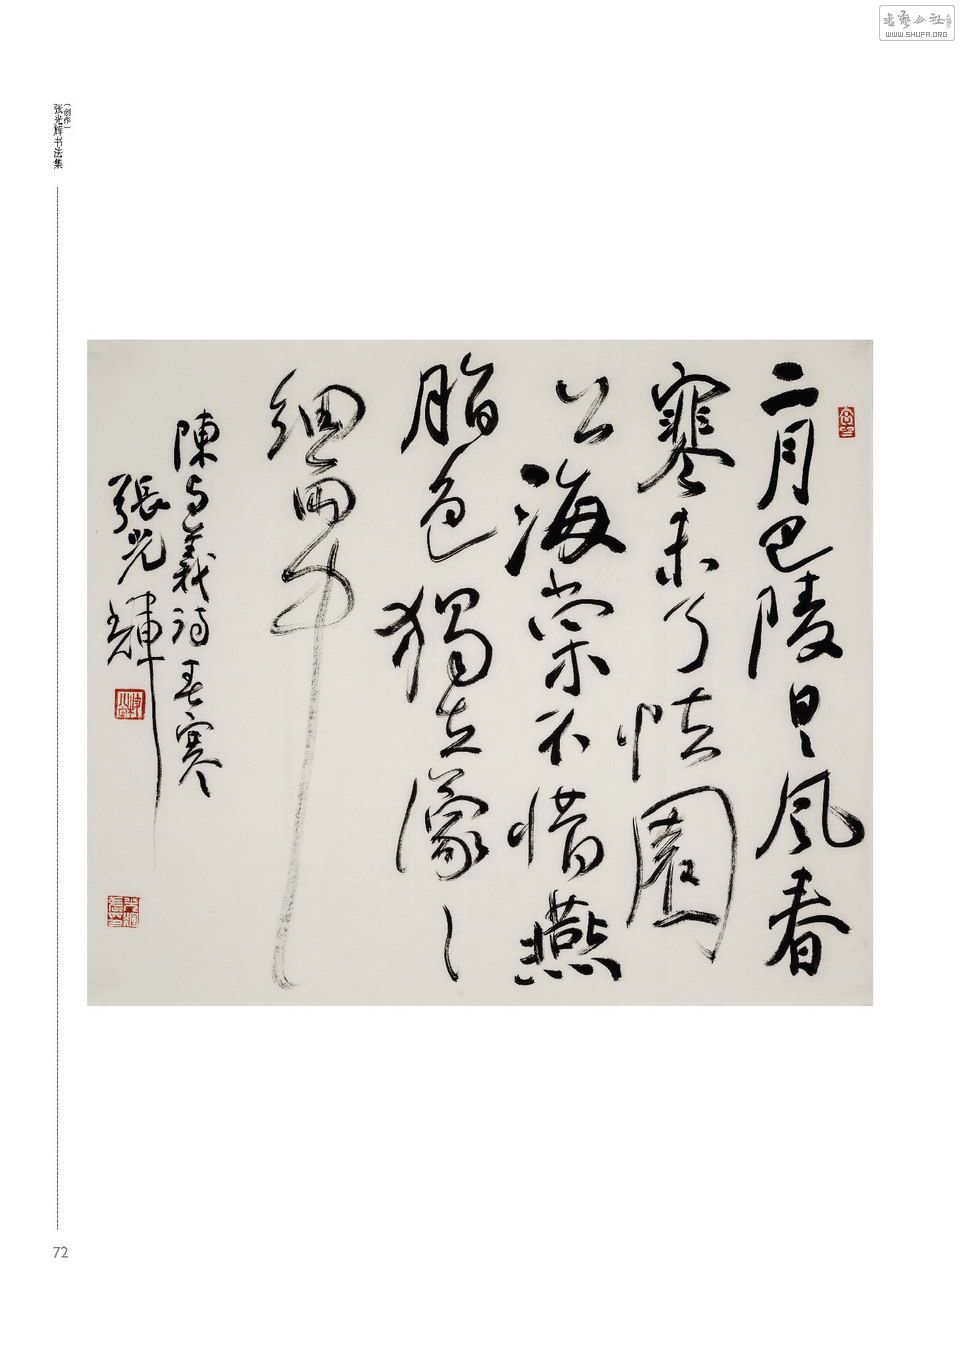 書藝公社
WWW.SHUFA.ORG
（创作）
张光辉书法集
二月巴陵日〻風春
寒未了怯園
公海棠不惜燕
脂色獨立濛〻
細雨中
陳与義詩春寒
張光輝
72